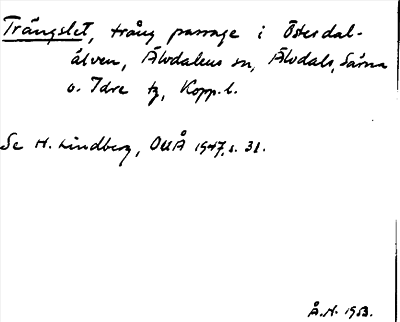 Trängslet, trång passage i Österdal-
älven, Älvdalens sn, Älvdals, Särna
o. Idre tg, Kopp. l.
Se H. Lindberg, OUÅ 1947, s. 31.
Å.H. 1953.